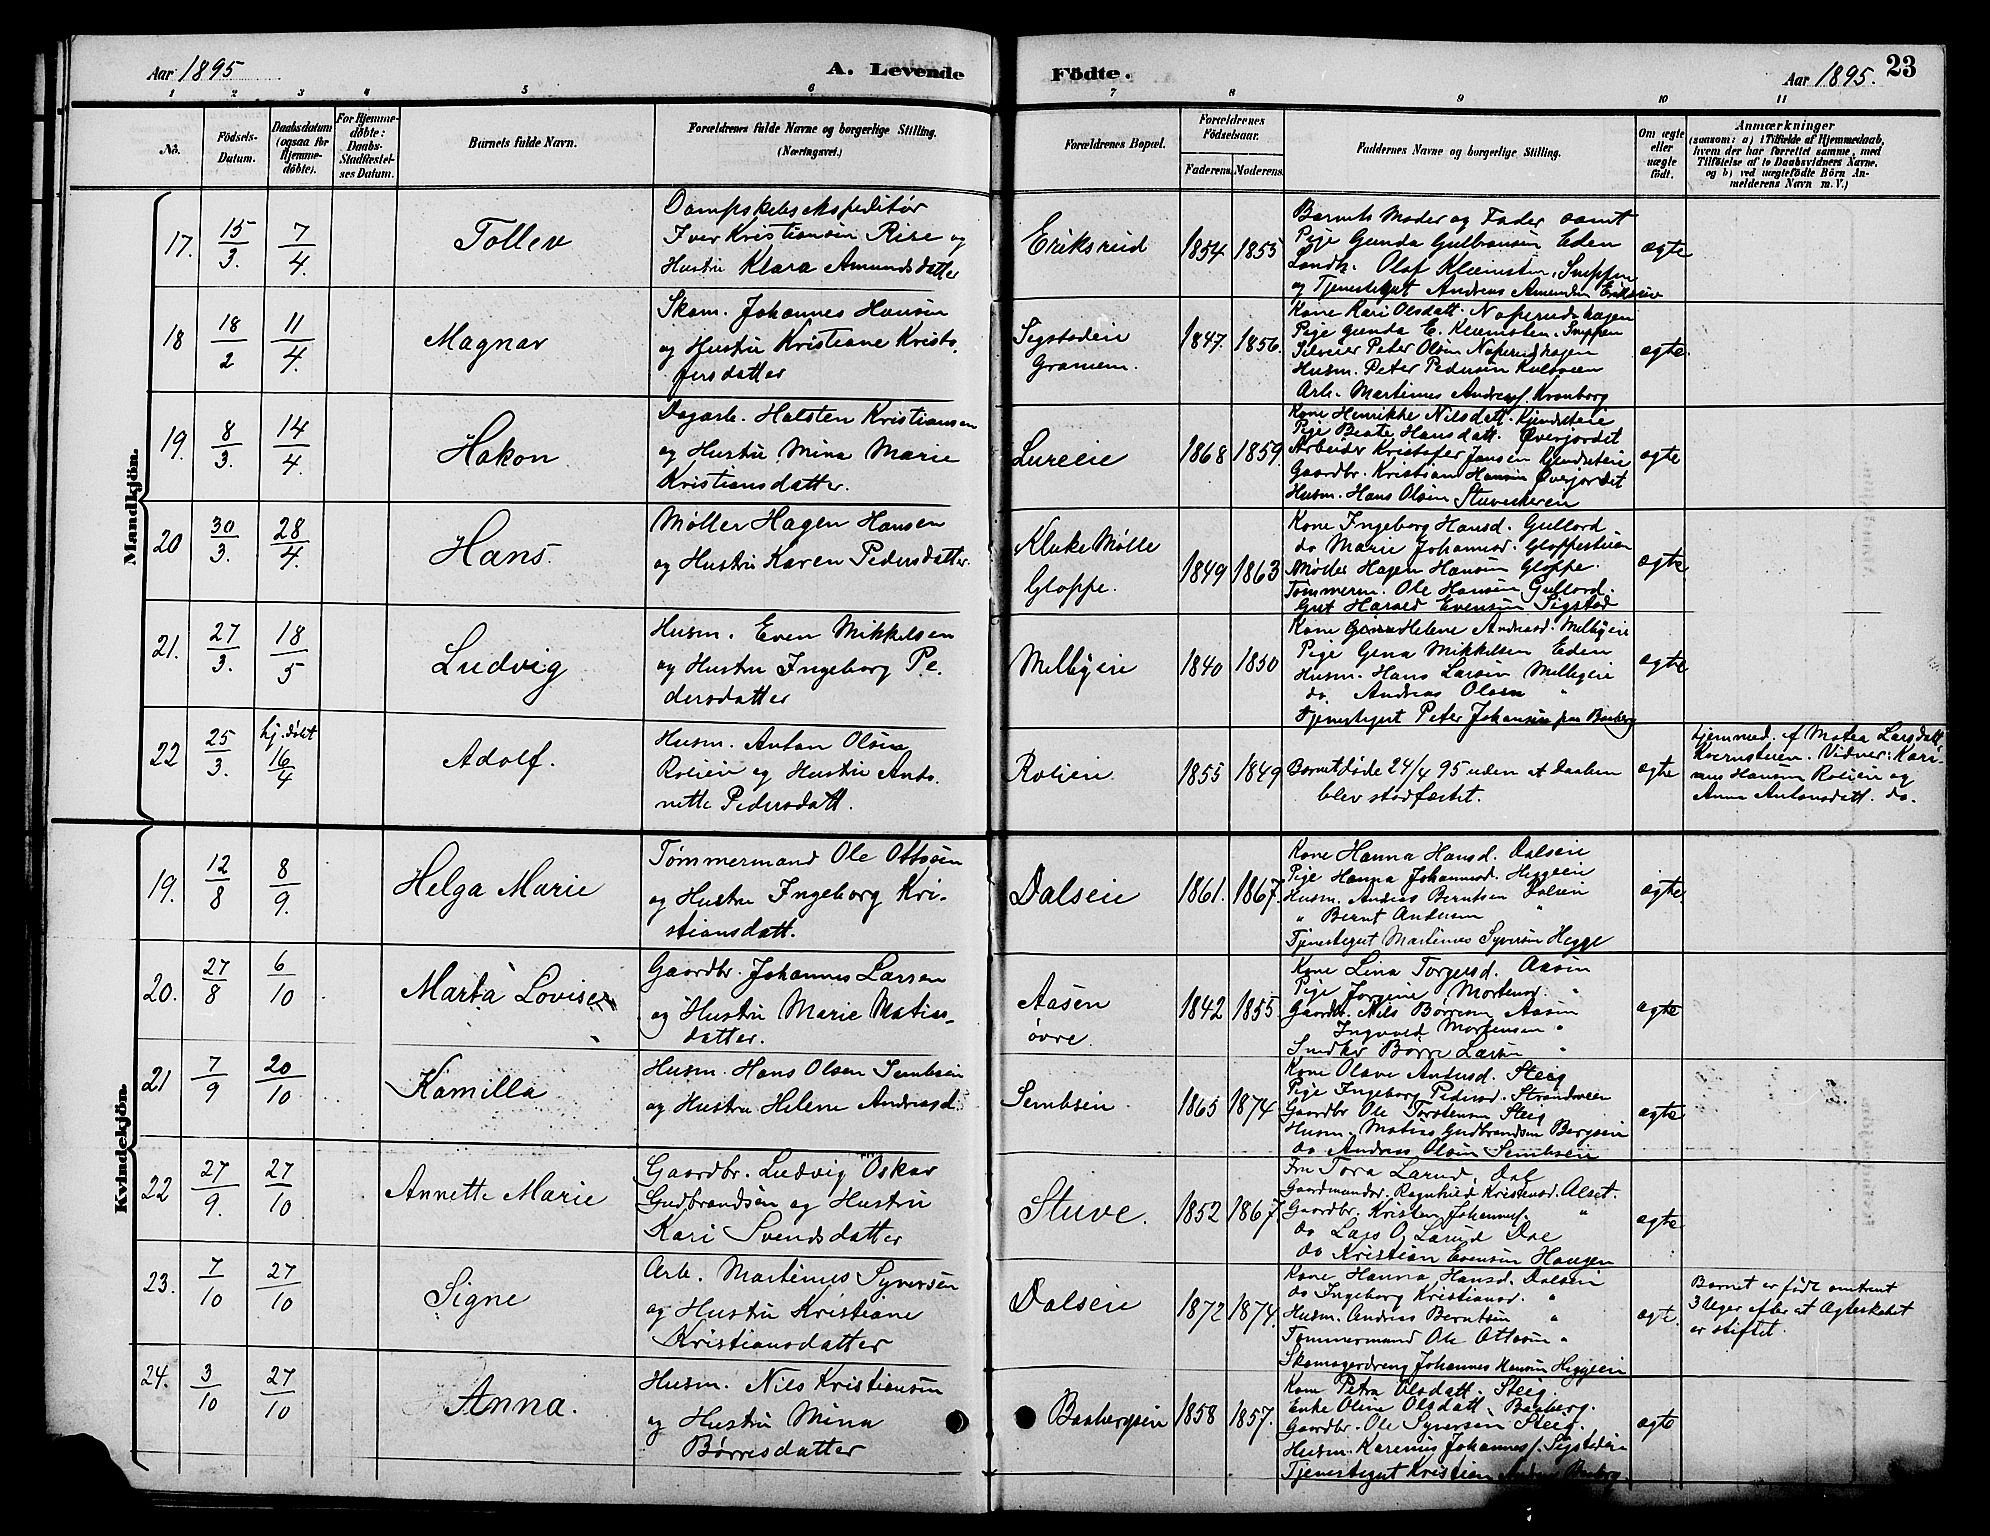 Aar 1895
A. Levende
Födte.
Aar 1895.
23
1 2 3 4 5 6 7 8 9 10 11
No.
Födsels-
Datum.
Daabsdatum
(ogsaa for
Hjemme-
døbte).
For Hjemme-
døbte:
Daabs-
Stadfæstel-
ses Datum.
Barnets fulde Navn.
Forældrenes fulde Navne og borgerlige Stilling.
(Næringsvei.)
Forældrenes Bopæl.
Forældrenes
Födselsaar.
Faderens.
Moderens.
Faddernes Navne og borgerlige Stilling.
Om ægte
eller
uægte
födt.
Anmærkninger
(saasom: a) i Tilfælde af Hjemmedaab,
hvem der har forrettet samme, med
Tilföielse af to Daabsvidners Navne,
og b) ved uægtefödte Börn An-
melderens Navn m. V.)
Mandkjön.
17. 15/3. 7/4 Tollev
Dampskibsekspeditør
Iver Kristiansen Rise og
Hustru Klara Amundsdatter
Eriksreid 1854 1855
Barnets Moder og Fader samt
Pige Gunda Gulbransen Eden
Landh. Olaf Klemetsen, Snippen
og Tjenestegut Andreas Amundsen
ægte
18 18/2 11/4. Magnar
Skom. Johannes Hansen
og Hustru Kristiane Kristo-
fersdatter
Sigstadeie
Gramem. 1847. 1856.
Kone Kari Olsdatt. Naperudhagen
Pige Gunda E. Klemetsen. Snippen
Peter Olsen Naperudhagen
Husm. Peter Pedersen
Arb. Martinus Andreas. Kronborg
ægte.
19. 8/3. 14/4 Hakon
Dagarb. Halsten Kristiansen
og Hustru Mina Marie
Kristiansdatter.
Lureeie 1868 1859.
Kone Henrikke Nilsdatt.
Pige Beate Hansdatt. Øverjordet
Arbeider Kristofer Jansen
Gaardbr. Kristian Hansen Øverjordet
Husm. Hans Olsen
ægte
20 30/3. 28/4. Hans.
Møller Hagen Hansen
og Hustru Karen Pedersdatter.
Kluke Mølle
Gloppe. 1849 1863
Kone Ingeborg Hansd. Gullord
do Marie Johannesd. Gloppestuen
Møller Hagen Hansen Gloppe.
Tømmerm. Ole Hansen Gullord.
Gut Harald Evensen Sigstad
ægte
21. 27/3. 18/5 Ludvig
Husm. Even Mikkelsen
og Hustru Ingeborg Pe-
dersdatter
Melbyeie 1840 1850
Kone Helene Andreasd. Melbyeie
Pige Gena Mikkelsen Eden
Husm. Hans Larsen Melbyeie
do Andreas Olsen "
Tjenestegut Peter Johansen paa Baaberg
ægte
22 25/3. hj. døbt
16/4 Adolf.
Husm. Anton Olsen
Rolieie og Hustru Anto-
nette Pedersdatt.
Rolieie 1855 1849
Barnet døde 24/4 95 uden at Daaben
blev stadfæstet.
ægte
hjemmed. af Matea Larsdatt.
Vidner: Kari-
nus Hansen Rolieie og
Anna Antonsdatt. do.
Kvindekjön.
19. 12/8 8/9. Helga Marie
Tømmermand Ole Ottosen
og Hustru Ingeborg Kri-
stiansdatt.
Dalseie 1861. 1867.
Kone Hanna Hansd. Dalseie
Pige Hanna Johannesd. Heggeeie
Husm. Andreas Berntsen Dalseie
" Bernt Andersen "
Tjenestegut Martinus Syversen Hegge
ægte.
20. 27/8 6/10 Marta Lovise
Gaardbr. Johannes Larsen
og Hustru Marie Matias-
datter.
Aasen
øvre. 1842 1855
Kone Lina Torgersd. Aasen
Pige Jorgine Mortensd. "
Gaardbr. Nils Børresen Aasen
Ingvald Mortensen "
Snedker Børre Larsen "
ægte
21 7/9 20/10 Kamilla
Husm. Hans Olsen Sembseie
og Hustru Helene Andreasd.
Sembseie. 1865 1874
Kone Olave Andersd. Steeg
Pige Ingeborg Pedersd. Strandveen
Gaardbr Ole Torstensen Steeg
Husm. Matias Gudbrandsen Bergseie
do Andreas Olsen Sembseie
ægte
22 27/9. 27/10 Annette Marie
Gaardbr. Ludvig Oskar
Gudbrandsen og Hustru
Kari Svendsdatter
Stuve. 1852 1867
Fru Tora Larud. Dal
Gaardmandsd. Ragnhild Kristensd. Alset.
Gaardbr. Kristen Johannes. "
do Lars O. Larud Dal
do Kristian Evensen Haugen
ægte
23. 7/10 27/10 Signe
Arb. Martinus Syversen
og Hustru Kristiane
Kristiansdatter
Dalseie 1872 1874.
Kone Hanna Hansd. Dalseie
do Ingeborg Kristiansd. "
Husm. Andreas Berntsen "
Tømmermand Ole Ottosen "
Skomagerdreng Johannes Hansen Heggeeie
ægte.
Barnet er født omtrent
3 Uger efter at Ægteskabet
er stiftet.
24. 3/10 27/10 Anna.
Husm. Nils Kristiansen
og Hustru Mina
Børresdatter
Baabergseie 1858 1857.
Kone Petra Olsdatt. Steeg.
Enke Oline Olsdatt. Baaberg.
Gaardbr. Ole Syversen Steeg.
Husm. Karenus Johannes. Sigstadeie
Tjenestegut Kristian Baaberg.
ægte